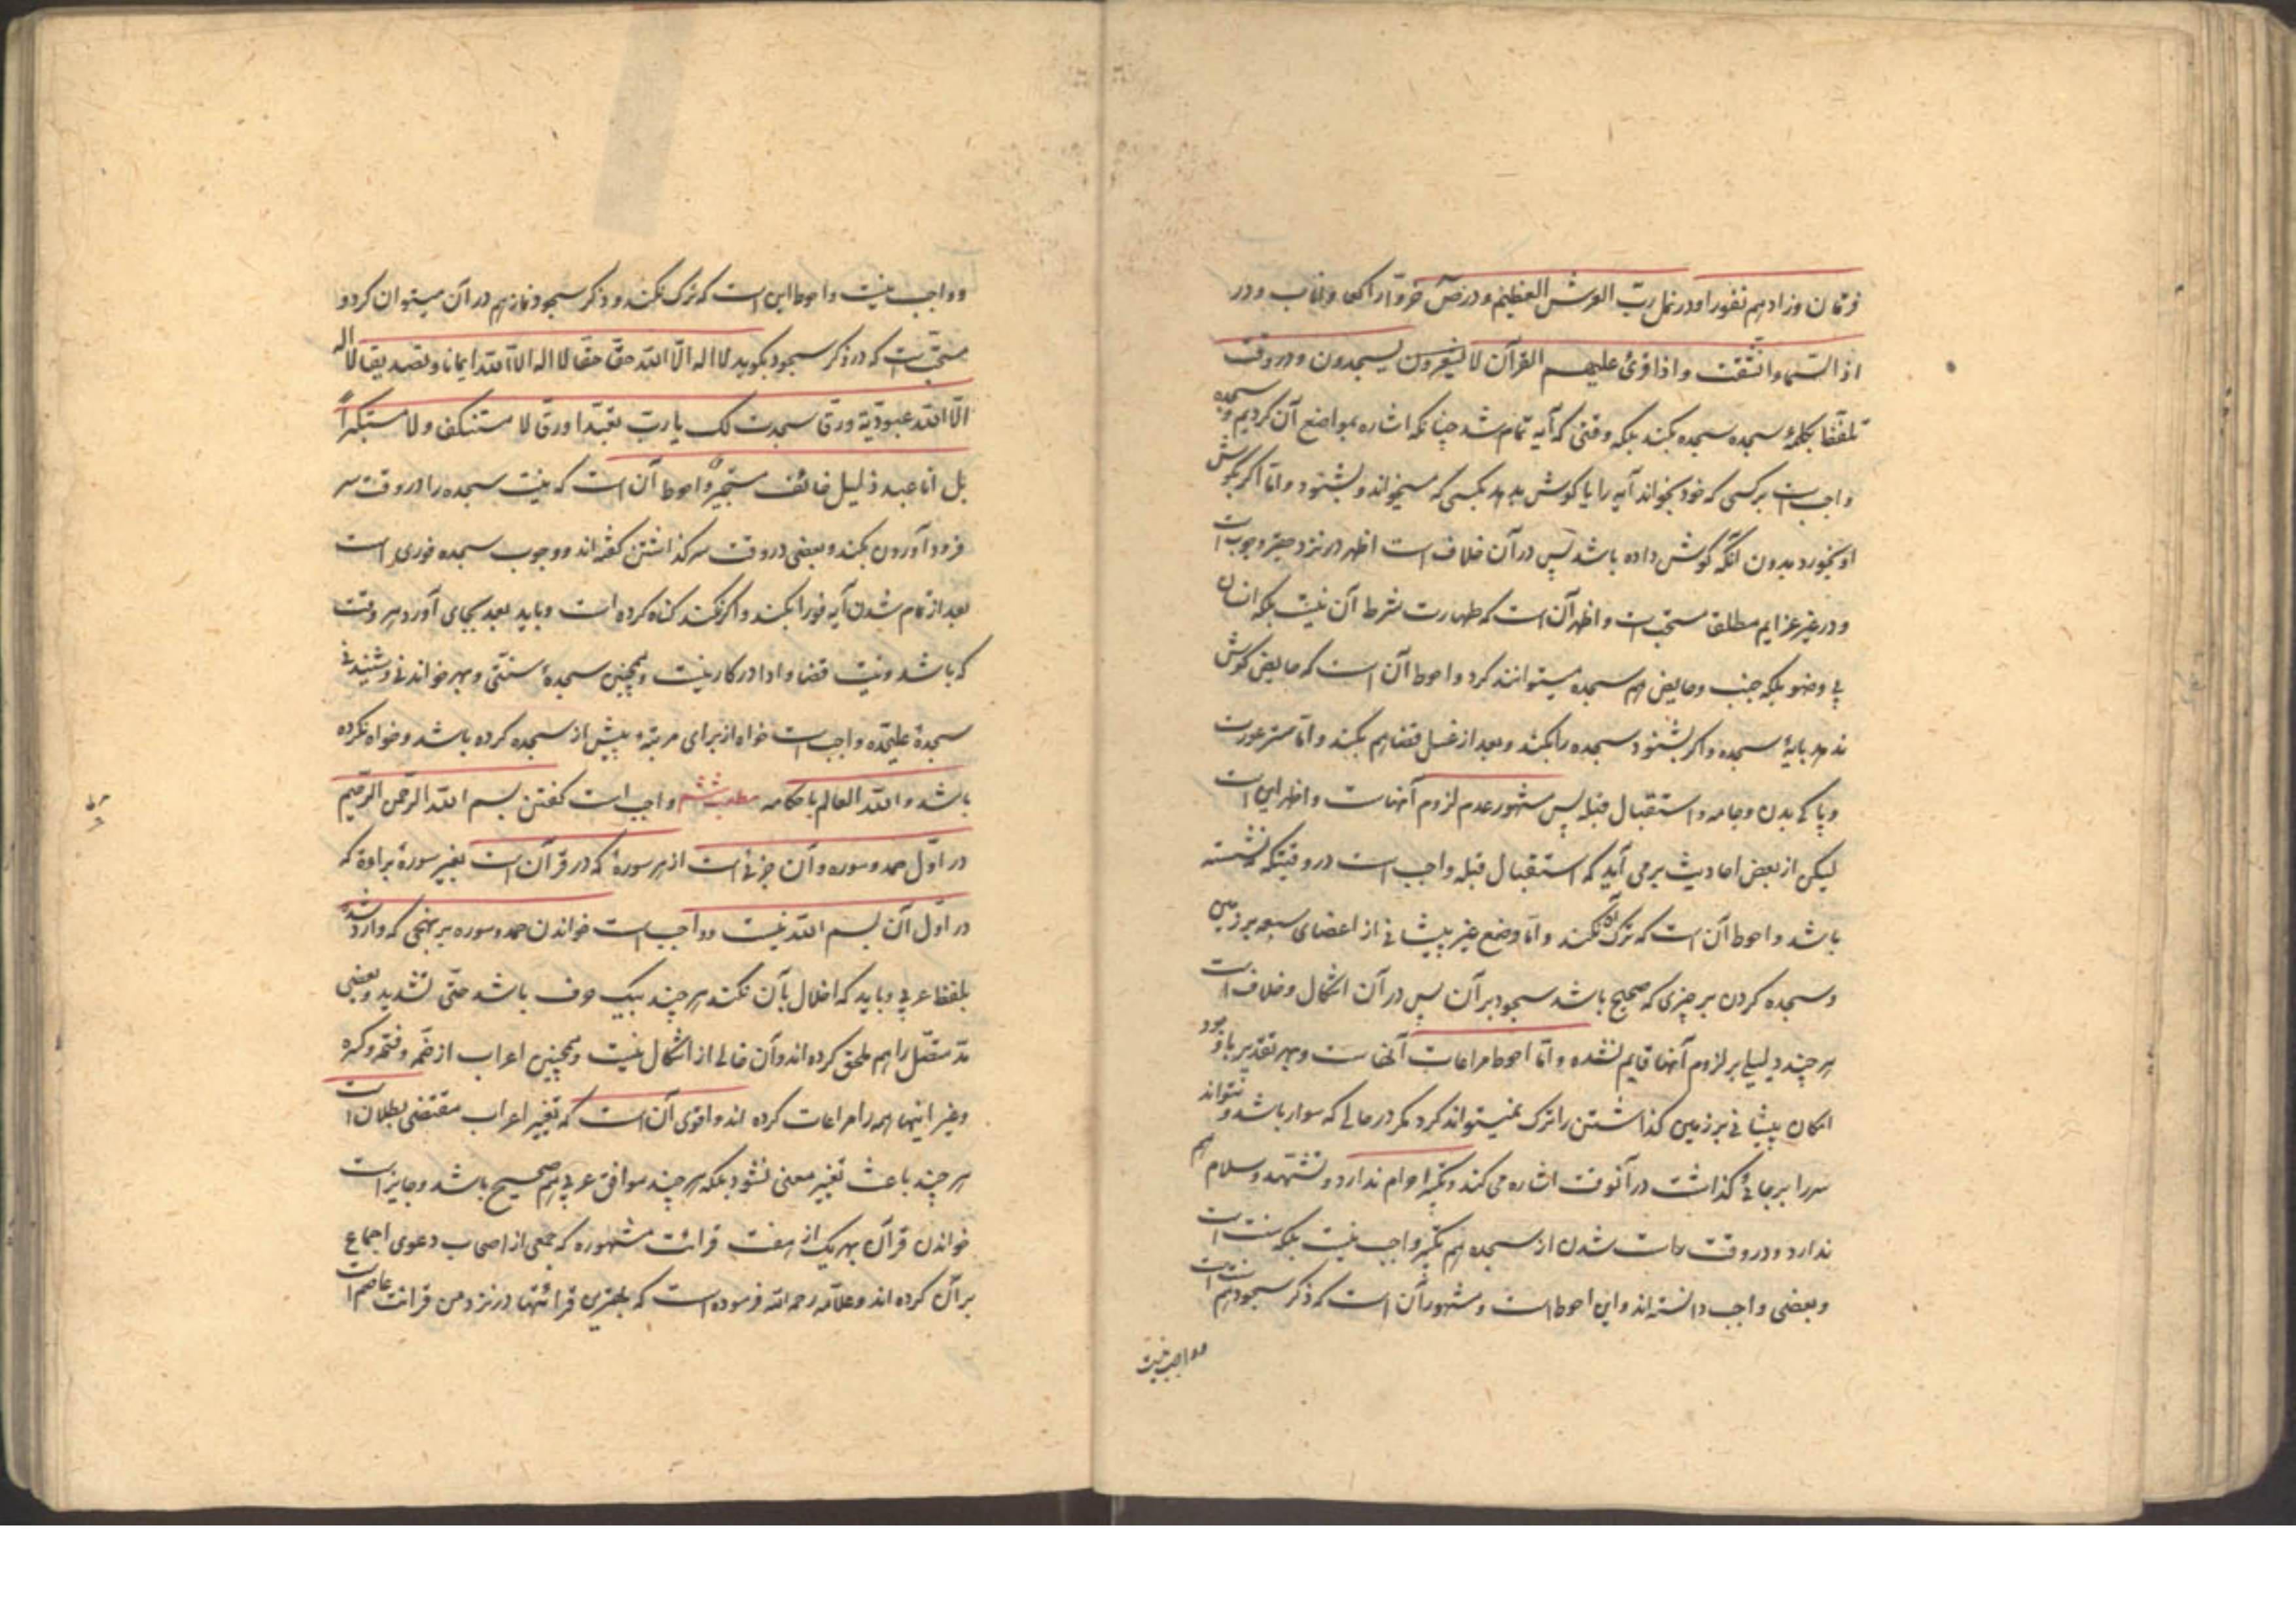 فرقان وزادهم نفورا و در نمل رب العرش العظیم و در ص خر و راکعا و اناب و در
اذا السماء انشقت و اذا قرئ علیهم القرآن لا یسجدون و در وقت
تلفظ بکلمهٔ سجده سجده بکند بلکه وقتی که آیه تمام شد چنانکه اشاره بمواضع آن کردیم و سجده
واجبست بر کسی که خود بخواند آیه را یا کوش بدهد بکسی که میخواند و بشنود و اما اکر بکوش
او بخورد بدون آنکه کوش داده باشد پس در آن خلاف است اظهر در نزد حقیر وجوب است
و در غیر عزایم مطلقا مستحب است و اظهر آن است که طهارت شرط آن نیست بلکه انسان
بی وضو بلکه جنب و حایض هم سجده میتوانند کرد و احوط آن است که حایض کوش
ندهد بایهٔ سجده و اکر بشنود سجده را بکند و بعد از غسل قضا هم بکند و اما ستر عورت
و پاکی بدن و جامه و استقبال قبله پس مشهور عدم لزوم آنهاست و اظهر این است
لیکن از بعض احادیث بر می آید که استقبال قبله واجب است در وقتیکه نشسته
باشد و احوط آن است که ترک آن نکند و اما وضع غیر پیشانی از اعضای سبعه بر زمین
و سجده کردن بر چیزی که صحیح باشد سجود بر آن پس در آن اشکال و خلاف است
هر چند دلیلی بر لزوم آنها قایم نشده و اما احوط مراعات آنهاست و بهر تقدیر با وجود
امکان پیشانی بر زمین کذاشتن را ترک نمیتواند کرد مکر در حالی که سوار باشد و نتواند
سر را بر جائی کذاشت در آنوقت اشاره می کند و تکبیر احرام ندارد و تشهد و سلام هم
ندارد و در وقت راست شدن از سجده هم تکبیر واجب نیست بلکه سنت است
و بعضی واجب دانسته اند و این احوط است و مشهور آن است که ذکر سجود هم سنت است
و واجب نیست
و واجب نیست و احوط این است که ترک نکند و ذکر سجود نماز هم در آن میتوان کرد و
مستحب است که در ذکر سجود بکوید لا اله الّا الله حقّا حقّا لا اله الّا الله ایمانا و تصدیقا لا اله
الّا الله عبودیّة و رقّا سجدت لک یا ربّ تعبّدا و رقّا لا مستنکفا و لا مستکبراً
بل انا عبد ذلیل خائف مستجیر و احوط آن است که نیت سجده را در وقت سر
فرود آوردن بکند و بعضی در وقت سر کذاشتن کفته اند و وجوب سجده فوری است
بعد از تمام شدن آیه فورا بکند و اکر نکند کناه کرده است و باید بعد بجای آورد هر وقت
که باشد و نیت قضا و ادا در کار نیست و همچنین سجدهٔ سنتی و بهر خواندنی و شنیدنی
سجدهٔ علیحدّه واجب است خواه از برای مرتبهٔ پیش از سجده کرده باشد و خواه نکرده
باشد و الله العالم باحکامه مطلب ششم واجب است کفتن بسم الله الرحمن الرحیم
در اوّل حمد و سوره و آن جزئی است از هر سورهٔ که در قرآن است بغیر سورهٔ براءة که
در اوّل آن بسم الله نیست و واجب است خواندن حمد و سوره بر نهجی که وارد شد
بلفظ عربی و باید که اخلال بآن نکند هر چند بیک حرف باشد حتّی تشدید و بعضی
مدّ متصّل را هم ملحق کرده اند و آن خالی از اشکال نیست و همچنین اعراب از ضمّه و فتحه و کسره
و غیر اینها همه را مراعات کرده اند و اقوی آن است که تغییر اعراب مقتضی بطلان است
هر چند باعث تغییر معنی نشود بلکه هر چند موافق عربی هم صحیح باشد و جایز است
خواندن قرآن بهر یک از هفت قرائت مشهوره که جمعی از اصحاب دعوی اجماع
بر آن کرده اند و علّامه رحمه الله فرموده است که بهترین قرائتها در نزد من قرائت عاصم است